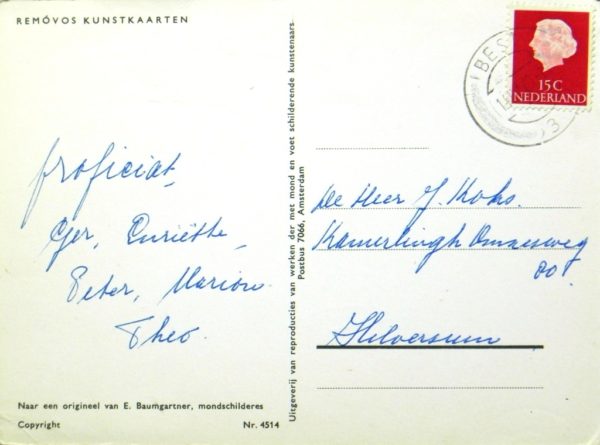 REMÓVOS KUNSTKAARTEN
proficiat,
Ger, Enriëtte,
Peter, Marion
Theo.
Naar een origineel van E. Baumgartner, mondschilderes
Copyright Nr. 4514
Uitgeverij van reproducties van werken der met mond en voet schilderende kunstenaars
Postbus 7066, Amsterdam
BEST
15 C
NEDERLAND
De Heer J. Koks.
Kamerlingh Onnesweg
Hilversum